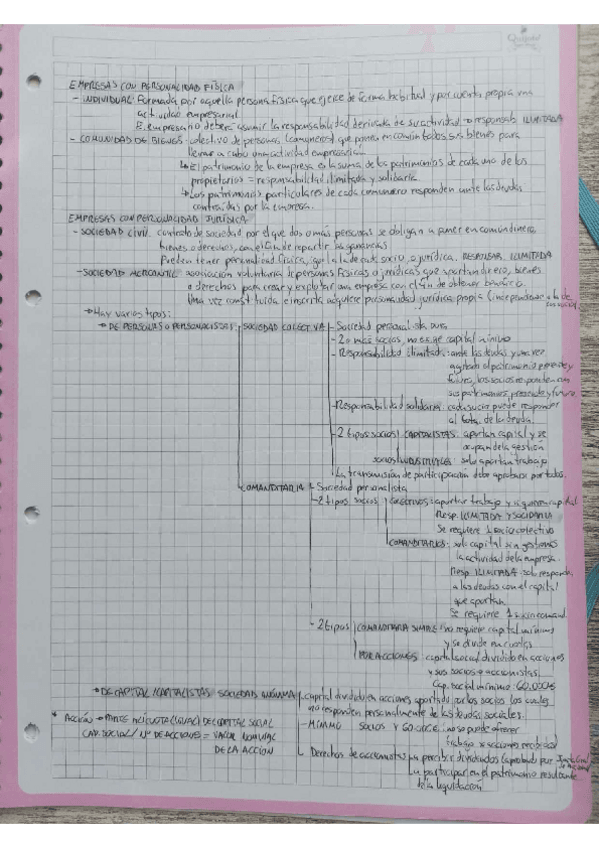 EMPRESAS CON PERSONALIDAD FÍSICA
- INDIVIDUAL: Formada por aquella persona física que ejerce de forma habitual y por cuenta propia una
actividad empresarial
El empresario deberá asumir la responsabilidad derivada de su actividad → responsab. ILIMITADA
- COMUNIDAD DE BIENES: colectivo de personas (comuneros) que ponen en común todos sus bienes para
llevar a cabo una actividad empresarial
↳ El patrimonio de la empresa es la suma de los patrimonios de cada uno de los
propietarios = responsabilidad ilimitada y solidaria.
↳ Los patrimonios particulares de cada comunero responden ante las deudas
contraídas por la empresa.
EMPRESAS CON PERSONALIDAD JURÍDICA
- SOCIEDAD CIVIL: contrato de sociedad por el que dos o más personas se obligan a poner en común dinero,
bienes o derechos, con el fin de repartir las ganancias
Pueden tener personalidad física, igual a la de cada socio, o jurídica. RESPONSAB. ILIMITADA
- SOCIEDAD MERCANTIL: asociación voluntaria de personas físicas o jurídicas que aportan dinero, bienes
o derechos para crear y explotar una empresa con el fin de obtener beneficio.
Una vez constituida e inscrita, adquiere personalidad jurídica propia (independiente a la de
sus socios)
↳ Hay varios tipos:
→ DE PERSONAS O PERSONALISTAS: SOCIEDAD COLECTIVA - Sociedad personalista pura
- 2 o más socios, no exige capital mínimo
- Responsabilidad ilimitada: ante las deudas y una vez
agotado el patrimonio presente y
futuro, los socios responden con
sus patrimonios presente y futuro.
- Responsabilidad solidaria: cada socio puede responder
al total de la deuda.
- 2 tipos socios CAPITALISTAS: aportan capital y se
ocupan de la gestión
SOCIOS INDUSTRIALES: solo aportan trabajo
- La transmisión de participación debe aprobarse por todos.
COMANDITARIA - Sociedad personalista
- 2 tipos socios COLECTIVOS: aportan trabajo y capital
Resp. ILIMITADA Y SOLIDARIA
Se requiere 1 socio colectivo
COMANDITARIOS: solo capital sin gestionar
la actividad de la empresa.
Resp. solo responden
a las deudas con el capital
que aportan.
Se requiere 1 socio comand.
- 2 tipos COMANDITARIA SIMPLE: no requiere capital mínimo
y se divide en cuotas
POR ACCIONES: capital social dividido en acciones
y sus socios → accionistas.
Cap. social mínimo: 60.000€
→ DE CAPITAL (CAPITALISTAS) SOCIEDAD ANÓNIMA - capital dividido en acciones aportado por los socios los cuales
no responden personalmente de las deudas sociales.
* ACCIÓN → PARTE ALÍCUOTA (IGUAL) DEL CAPITAL SOCIAL
- MÍNIMO SOCIOS Y 60.000€: no se puede ofrecer
trabajo
CAP. SOCIAL / Nº DE ACCIONES = VALOR NOMINAL
DE LA ACCIÓN
- Derechos de accionistas: ↳ percibir dividendos (aprobado por Junta Gral
↳ participar en el patrimonio resultante
de la liquidación